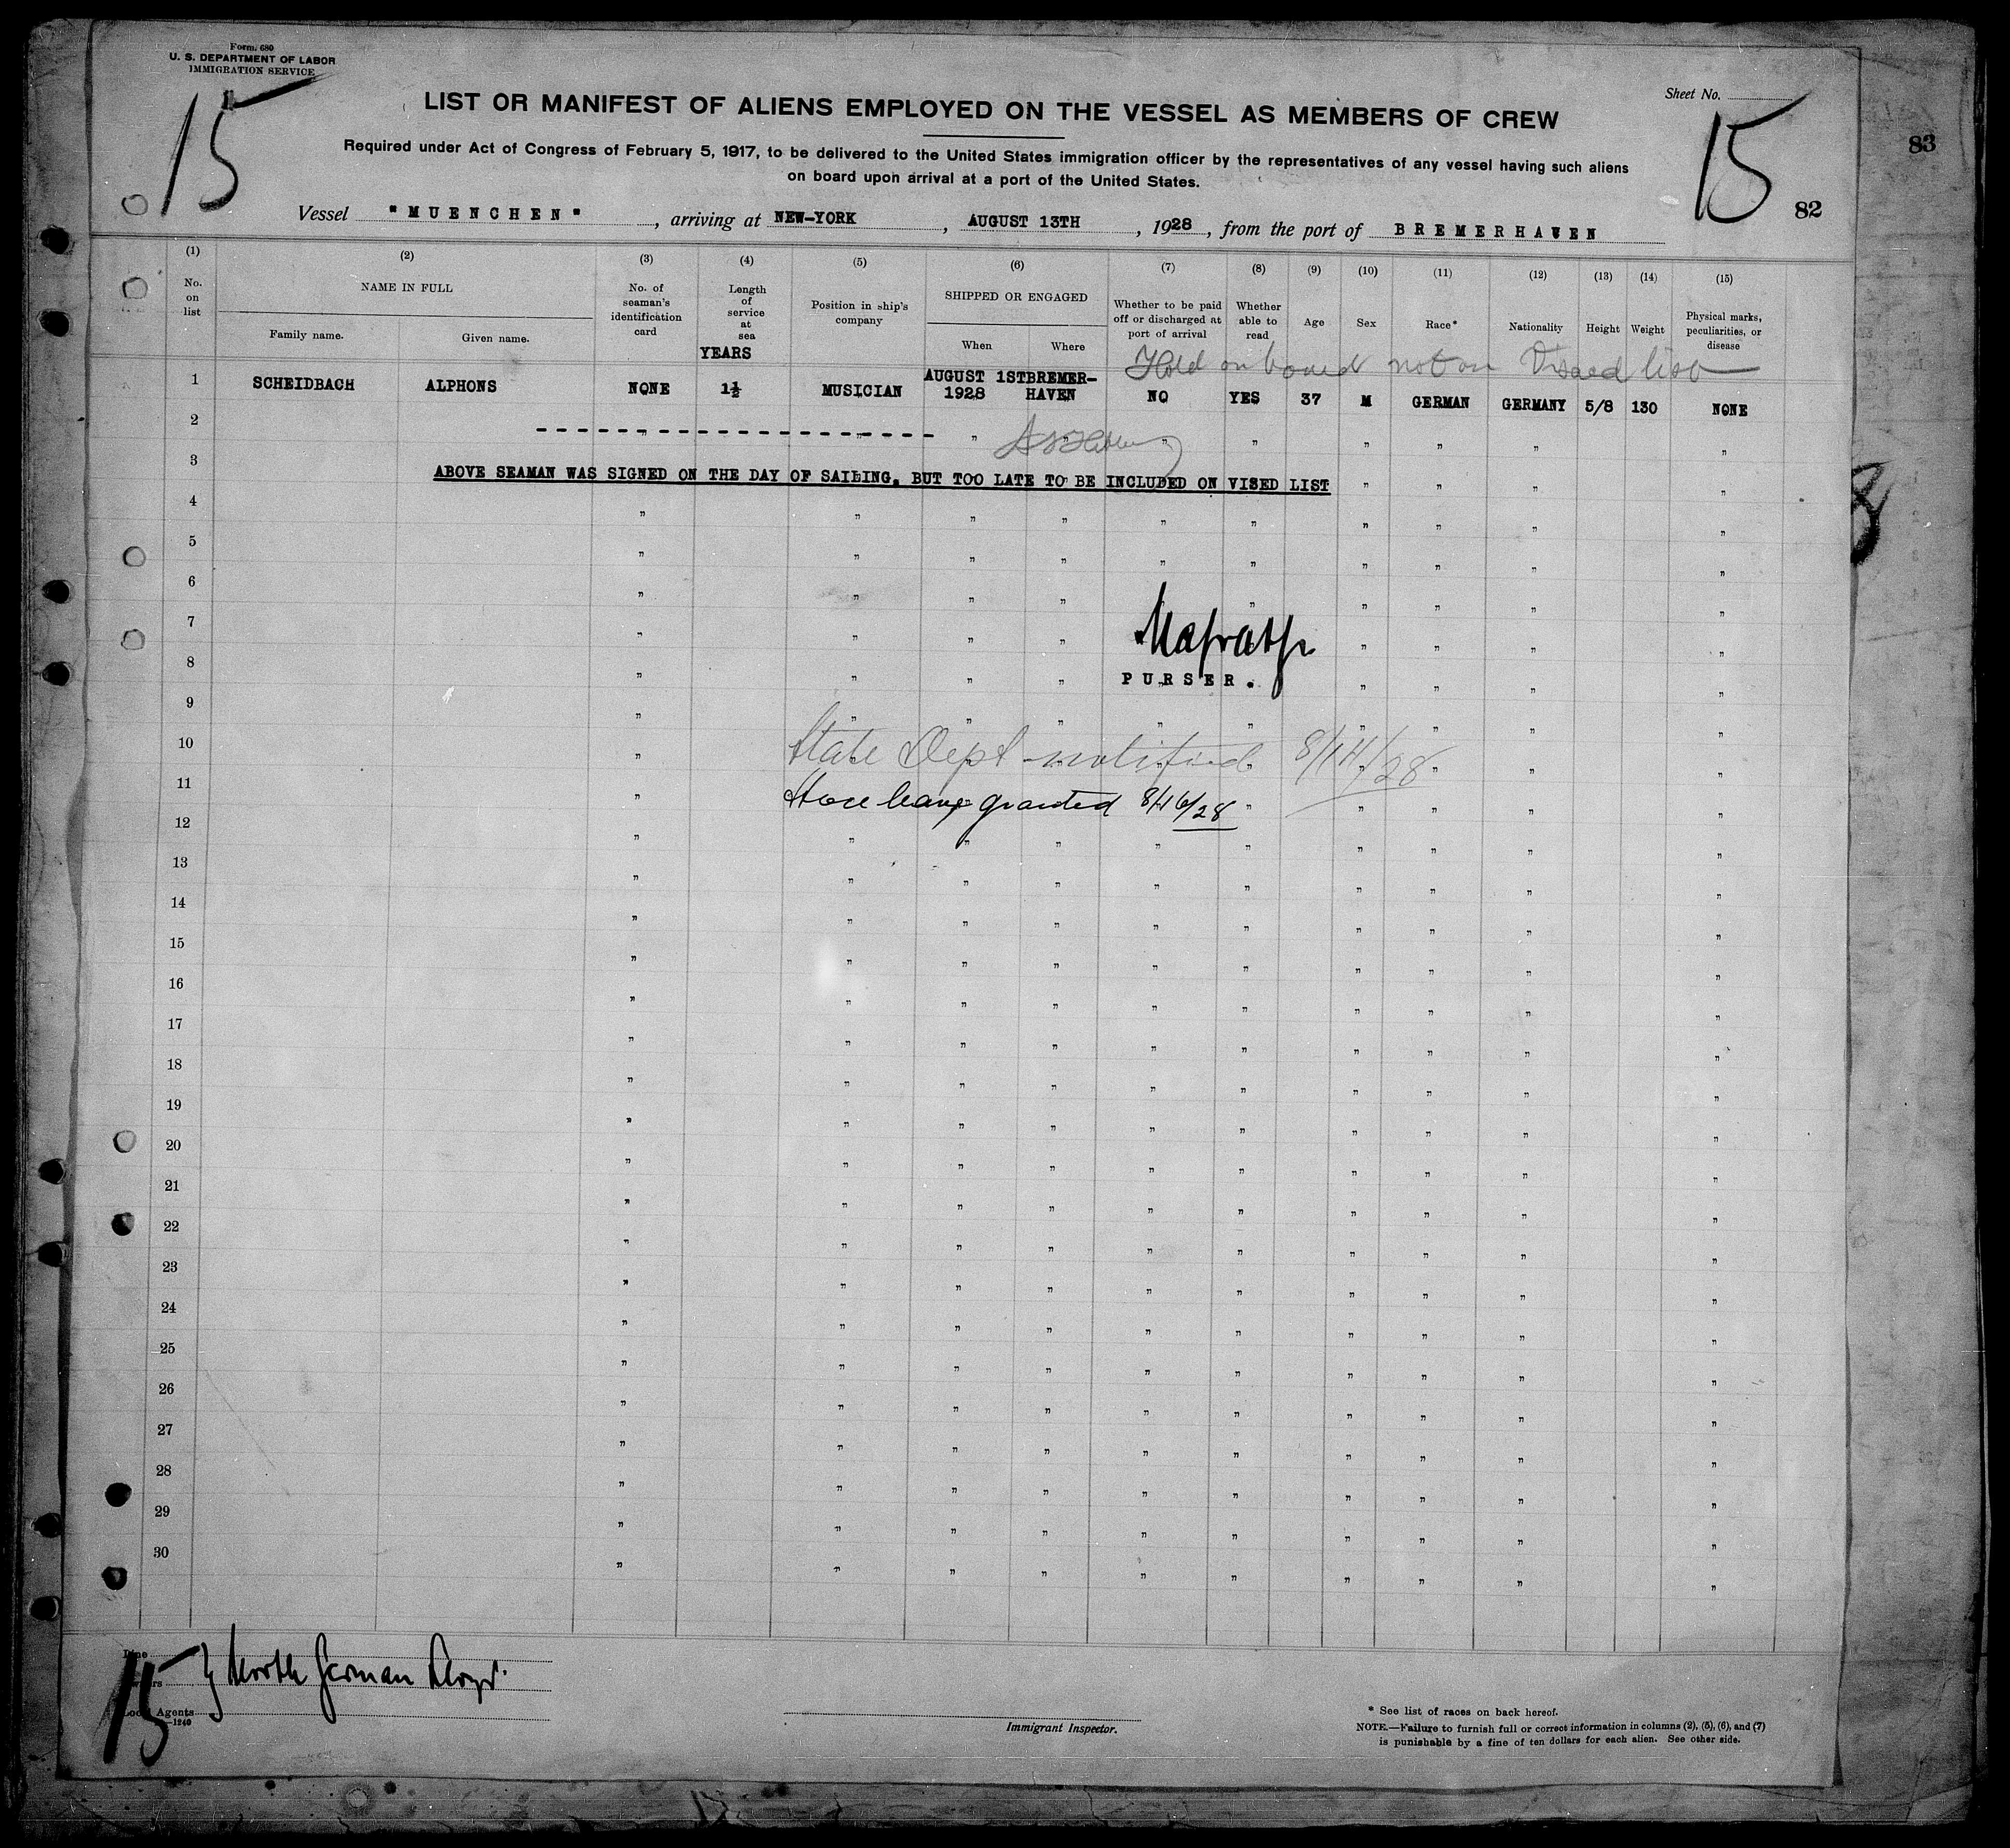 Form 680
U. S. DEPARTMENT OF LABOR
IMMIGRATION SERVICE
15
Sheet No.
15
83
LIST OR MANIFEST OF ALIENS EMPLOYED ON THE VESSEL AS MEMBERS OF CREW
Required under Act of Congress of February 5, 1917, to be delivered to the United States immigration officer by the representatives of any vessel having such aliens
on board upon arrival at a port of the United States.
82
Vessel "MUENCHEN", arriving at NEW-YORK, AUGUST 13TH, 1928, from the port of BREMERHAVEN
(1) (2) (3) (4) (5) (6) (7) (8) (9) (10) (11) (12) (13) (14) (15)
No. on list NAME IN FULL Family name. Given name. No. of seaman's identification card Length of service at sea Position in ship's company SHIPPED OR ENGAGED When Where Whether to be paid off or discharged at port of arrival Whether able to read Age Sex Race* Nationality Height Weight Physical marks, peculiarities, or disease
YEARS
Hold on board not on Visaed list
1 SCHEIDBACH ALPHONS NONE 1½ MUSICIAN AUGUST 1ST 1928 BREMER-HAVEN NO YES 37 M GERMAN GERMANY 5/8 130 NONE
2 " " " " " " " " " "
3 ABOVE SEAMAN WAS SIGNED ON THE DAY OF SAILING, BUT TOO LATE TO BE INCLUDED ON VISED LIST " " " "
4 " " " " " " " " " "
5 " " " " " " " " " "
6 " " " " " " " " " "
7 " " " " " " " "
8 " " " " " " " "
PURSER.
9 " " " " " " " " " "
10 State Dept notified 8/14/28
11 Shore leave granted 8/16/28
12 " " " " " " " " " "
13 " " " " " " " " " "
14 " " " " " " " " " "
15 " " " " " " " " " "
16 " " " " " " " " " "
17 " " " " " " " " " "
18 " " " " " " " " " "
19 " " " " " " " " " "
20 " " " " " " " " " "
21 " " " " " " " " " "
22 " " " " " " " " " "
23 " " " " " " " " " "
24 " " " " " " " " " "
25 " " " " " " " " " "
26 " " " " " " " " " "
27 " " " " " " " " " "
28 " " " " " " " " " "
29 " " " " " " " " " "
30 " " " " " " " " " "
North German Lloyd.
Local Agents
—1240
15
Immigrant Inspector.
* See list of races on back hereof.
NOTE.—Failure to furnish full or correct information in columns (2), (5), (6), and (7)
is punishable by a fine of ten dollars for each alien. See other side.